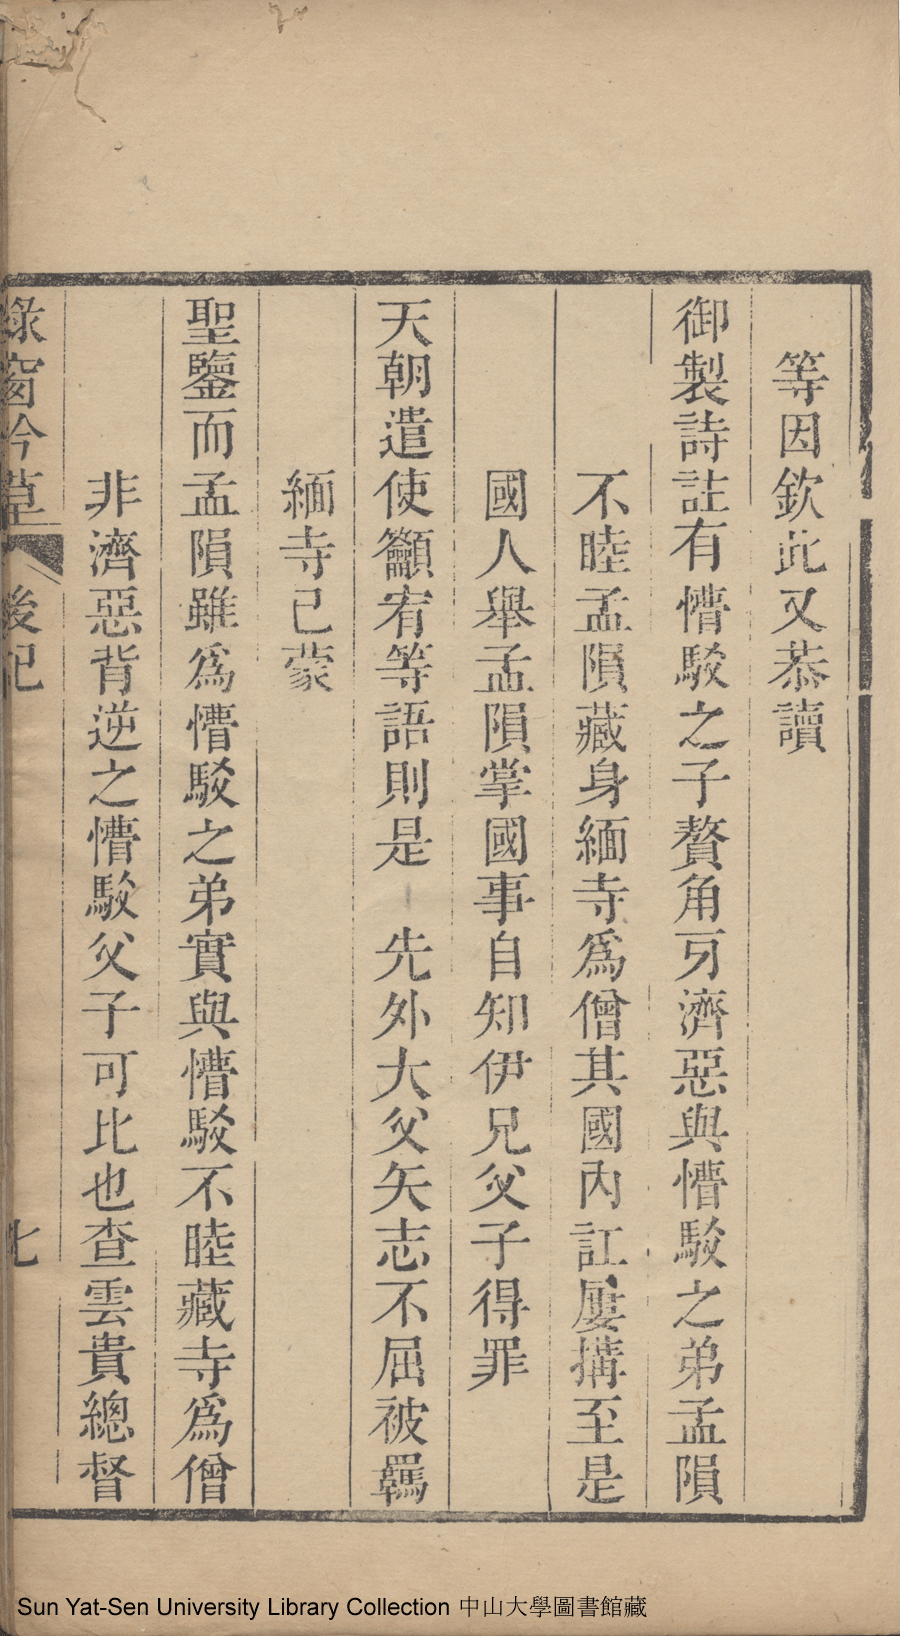 等因欽此又恭讀
御製詩註有懵駁之子贅角牙濟惡與懵駁之弟孟隕
不睦孟隕藏身緬寺爲僧其國內訌屢搆至是
國人舉孟隕掌國事自知伊兄父子得罪
天朝遣使籲宥等語則是先外大父矢志不屈被羈
緬寺已蒙
聖鑒而孟隕雖爲懵駁之弟實與懵駁不睦藏寺爲僧
非濟惡背逆之懵駁父子可比也查雲貴總督
綠窗吟草
後記
Sun Yat-Sen University Library Collection 中山大學圖書館藏